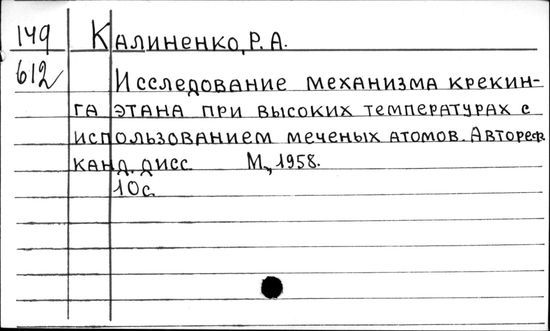 149 Калиненко, Р. А.
612 Исследование механизма крекин-
га этана при высоких температурах с
использованием меченых атомов. Автореф.
канд. дисс. М., 1958.
10с.